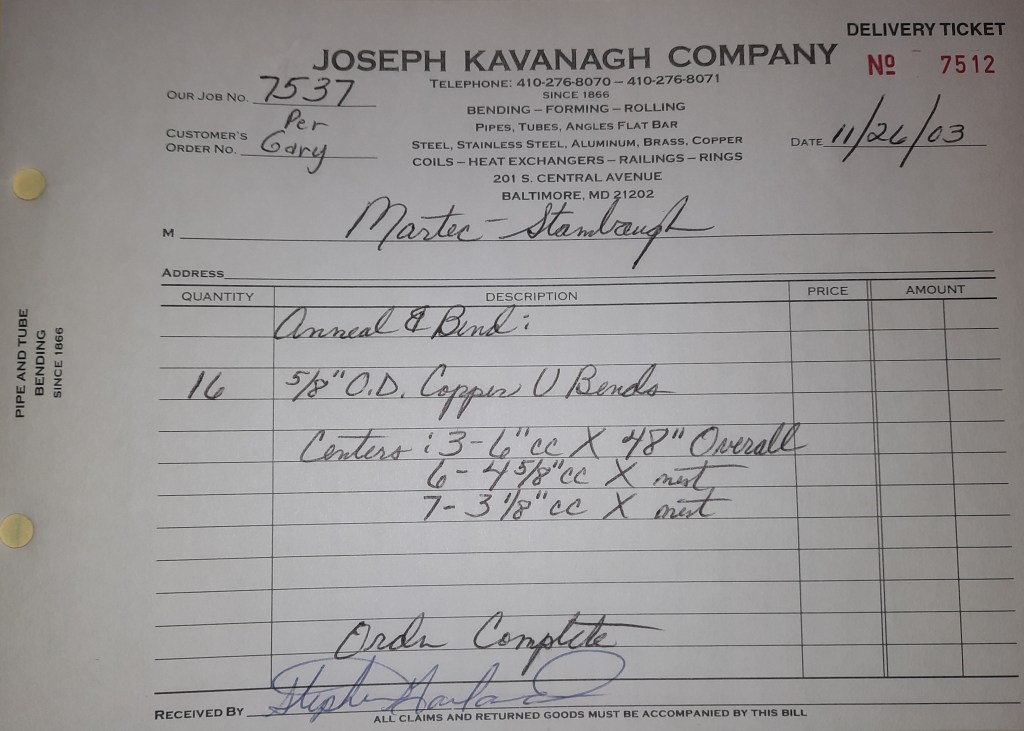 DELIVERY TICKET
JOSEPH KAVANAGH COMPANY
Nº 7512
TELEPHONE: 410-276-8070 – 410-276-8071
SINCE 1866
OUR JOB NO. 7537
BENDING – FORMING – ROLLING
PIPES, TUBES, ANGLES FLAT BAR
CUSTOMER'S ORDER NO. Per Gary
STEEL, STAINLESS STEEL, ALUMINUM, BRASS, COPPER
DATE 11/26/03
COILS – HEAT EXCHANGERS – RAILINGS – RINGS
201 S. CENTRAL AVENUE
BALTIMORE, MD 21202
M Martec - Stambaugh
ADDRESS
QUANTITY DESCRIPTION PRICE AMOUNT
Anneal & Bend:
16 5/8" O.D. Copper U Bends
Centers: 3-6"cc X 48" Overall
6- 4 5/8"cc X nest
7- 3 1/8"cc X nest
Order Complete
RECEIVED BY Stephen
ALL CLAIMS AND RETURNED GOODS MUST BE ACCOMPANIED BY THIS BILL
PIPE AND TUBE
BENDING
SINCE 1866